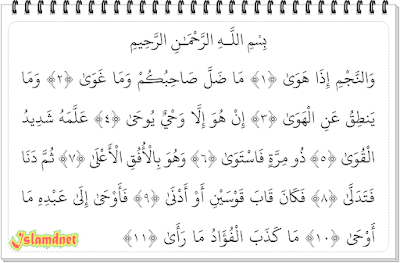 بِسْمِ اللَّـهِ الرَّحْمَـٰنِ الرَّحِيمِ
وَالنَّجْمِ إِذَا هَوَىٰ ﴿١﴾ مَا ضَلَّ صَاحِبُكُمْ وَمَا غَوَىٰ ﴿٢﴾ وَمَا
يَنطِقُ عَنِ الْهَوَىٰ ﴿٣﴾ إِنْ هُوَ إِلَّا وَحْيٌ يُوحَىٰ ﴿٤﴾ عَلَّمَهُ شَدِيدُ
الْقُوَىٰ ﴿٥﴾ ذُو مِرَّةٍ فَاسْتَوَىٰ ﴿٦﴾ وَهُوَ بِالْأُفُقِ الْأَعْلَىٰ ﴿٧﴾ ثُمَّ دَنَا
فَتَدَلَّىٰ ﴿٨﴾ فَكَانَ قَابَ قَوْسَيْنِ أَوْ أَدْنَىٰ ﴿٩﴾ فَأَوْحَىٰ إِلَىٰ عَبْدِهِ مَا
أَوْحَىٰ ﴿١٠﴾ مَا كَذَبَ الْفُؤَادُ مَا رَأَىٰ ﴿١١﴾
Islamdnet